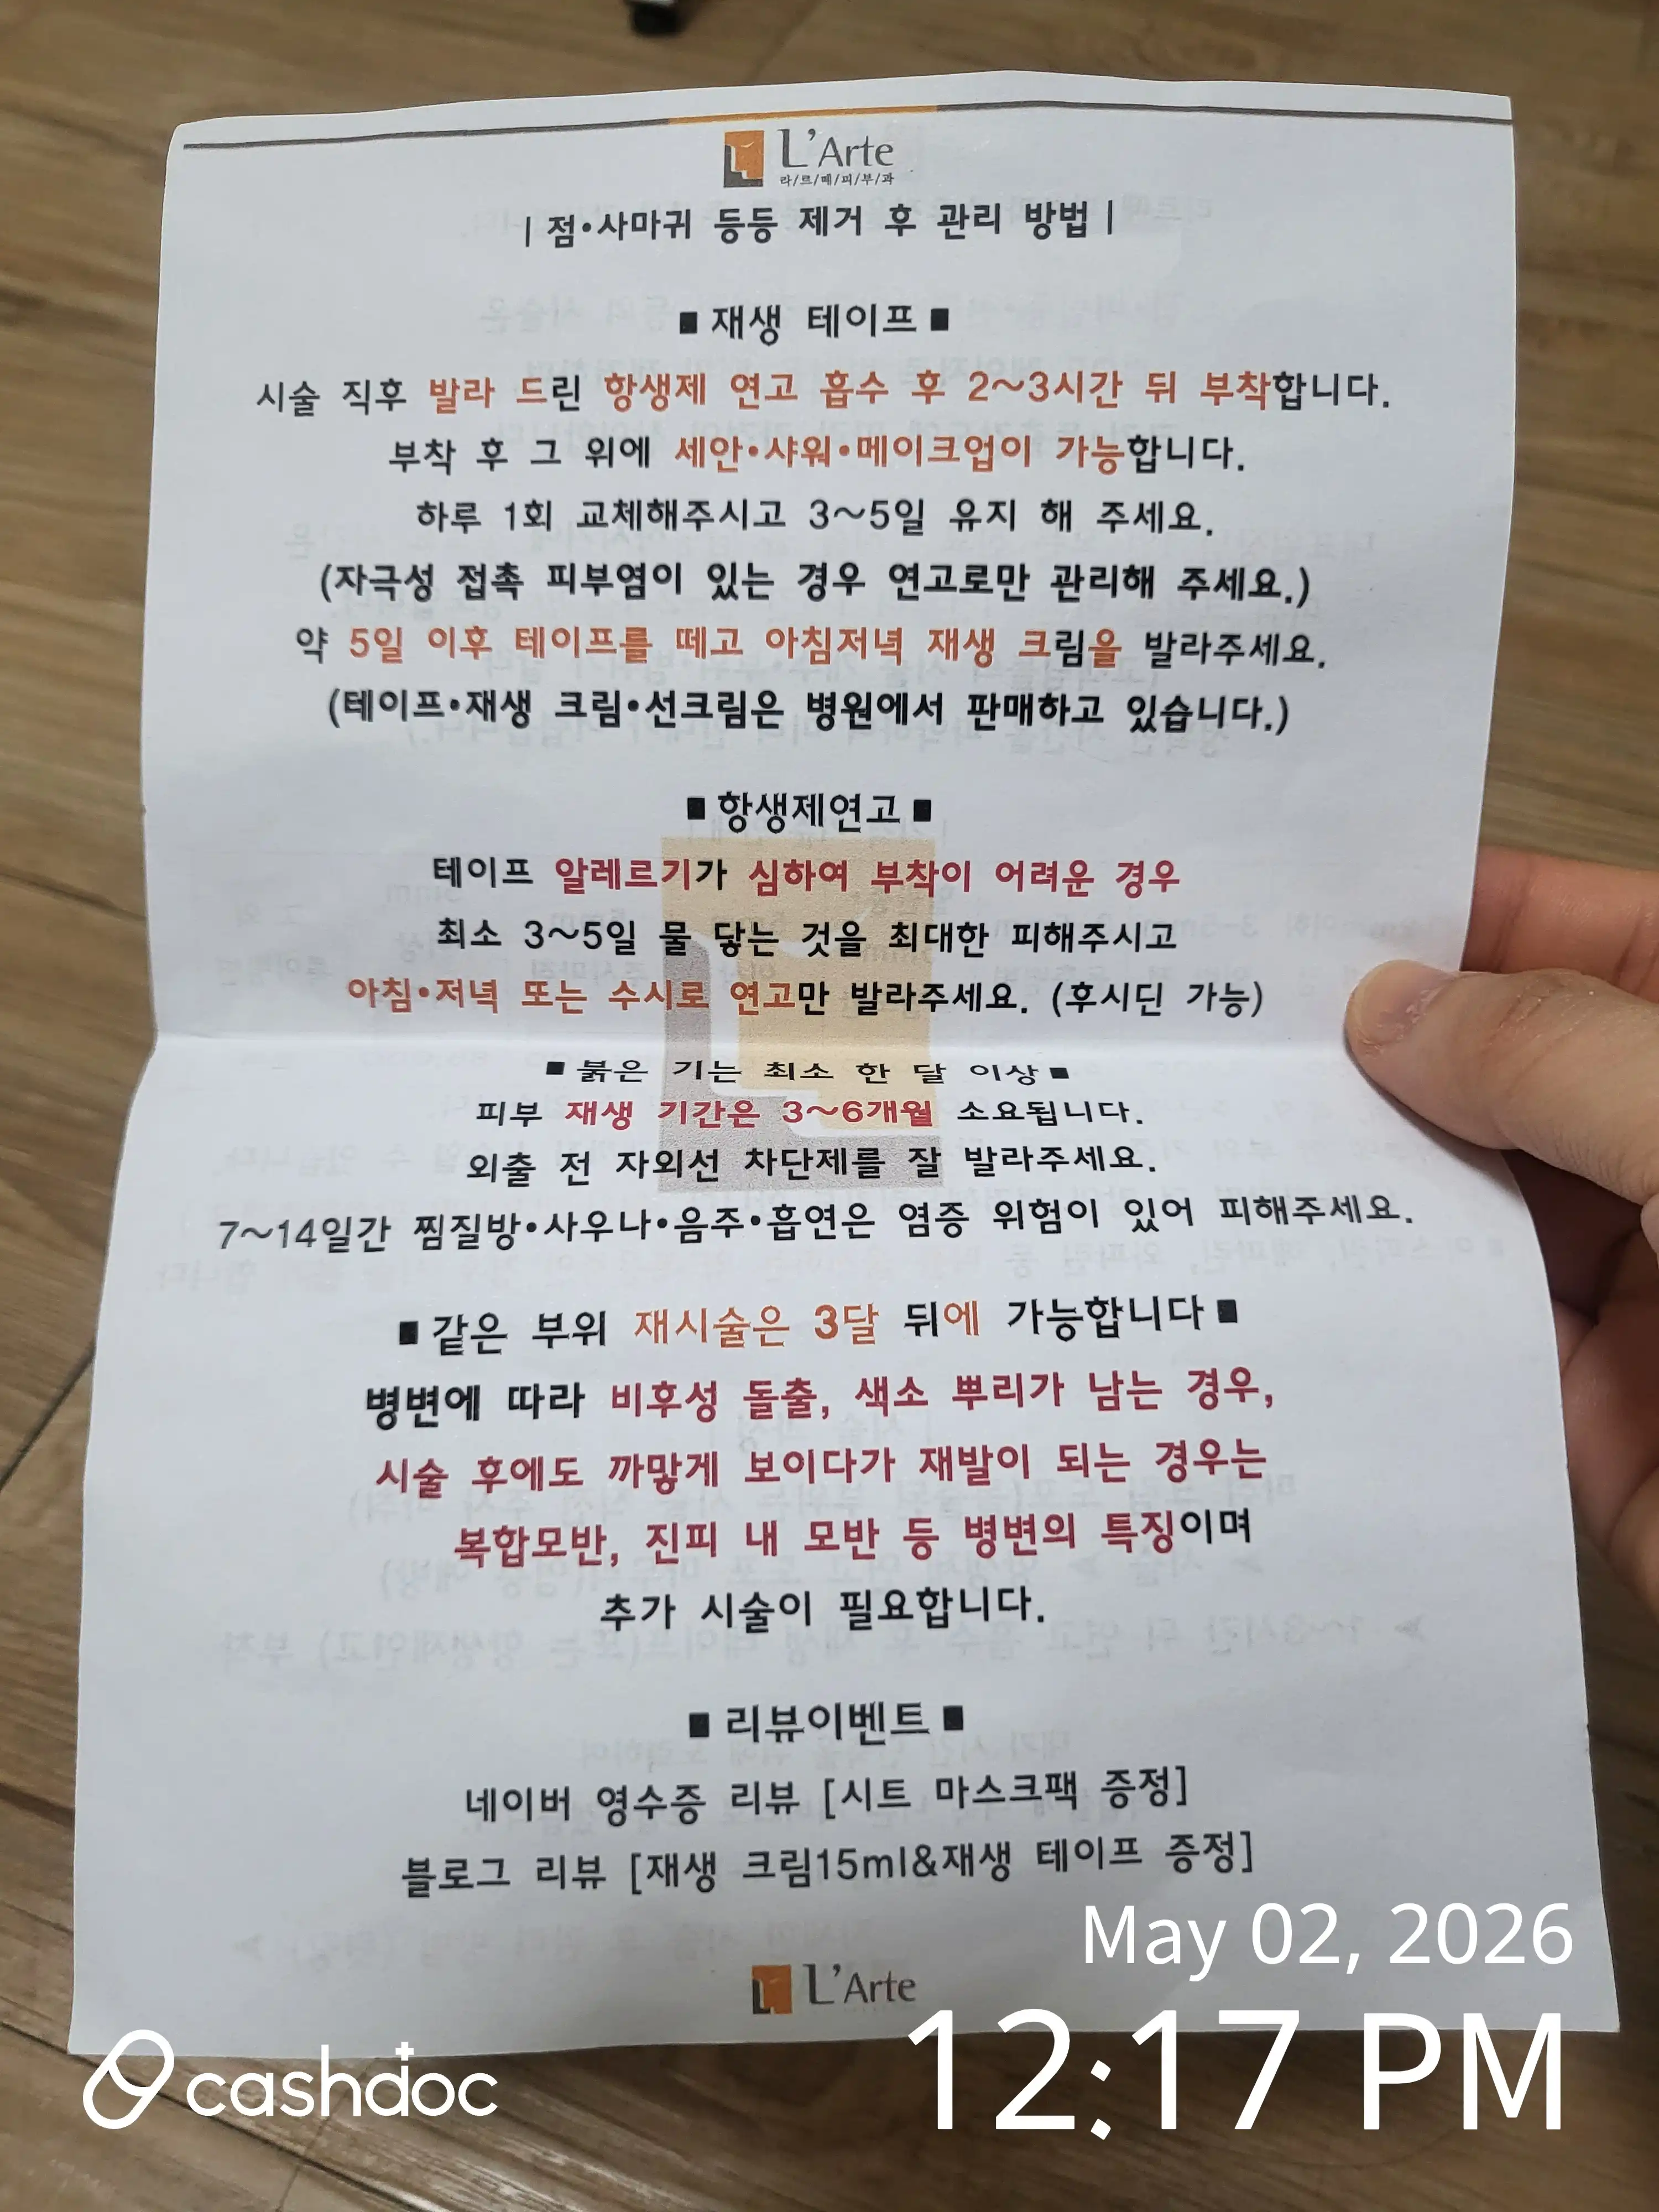 L'Arte
라/르/떼/피/부/과
| 점·사마귀 등등 제거 후 관리 방법 |
■ 재생 테이프 ■
시술 직후 발라 드린 항생제 연고 흡수 후 2~3시간 뒤 부착합니다.
부착 후 그 위에 세안·샤워·메이크업이 가능합니다.
하루 1회 교체해주시고 3~5일 유지 해 주세요.
(자극성 접촉 피부염이 있는 경우 연고로만 관리해 주세요.)
약 5일 이후 테이프를 떼고 아침저녁 재생 크림을 발라주세요.
(테이프·재생 크림·선크림은 병원에서 판매하고 있습니다.)
■ 항생제연고 ■
테이프 알레르기가 심하여 부착이 어려운 경우
최소 3~5일 물 닿는 것을 최대한 피해주시고
아침·저녁 또는 수시로 연고만 발라주세요. (후시딘 가능)
■ 붉은 기는 최소 한 달 이상 ■
피부 재생 기간은 3~6개월 소요됩니다.
외출 전 자외선 차단제를 잘 발라주세요.
7~14일간 찜질방·사우나·음주·흡연은 염증 위험이 있어 피해주세요.
■ 같은 부위 재시술은 3달 뒤에 가능합니다 ■
병변에 따라 비후성 돌출, 색소 뿌리가 남는 경우,
시술 후에도 까맣게 보이다가 재발이 되는 경우는
복합모반, 진피 내 모반 등 병변의 특징이며
추가 시술이 필요합니다.
■ 리뷰이벤트 ■
네이버 영수증 리뷰 [시트 마스크팩 증정]
블로그 리뷰 [재생 크림15ml&재생 테이프 증정]
L'Arte
May 02, 2026
12:17 PM
cashdoc